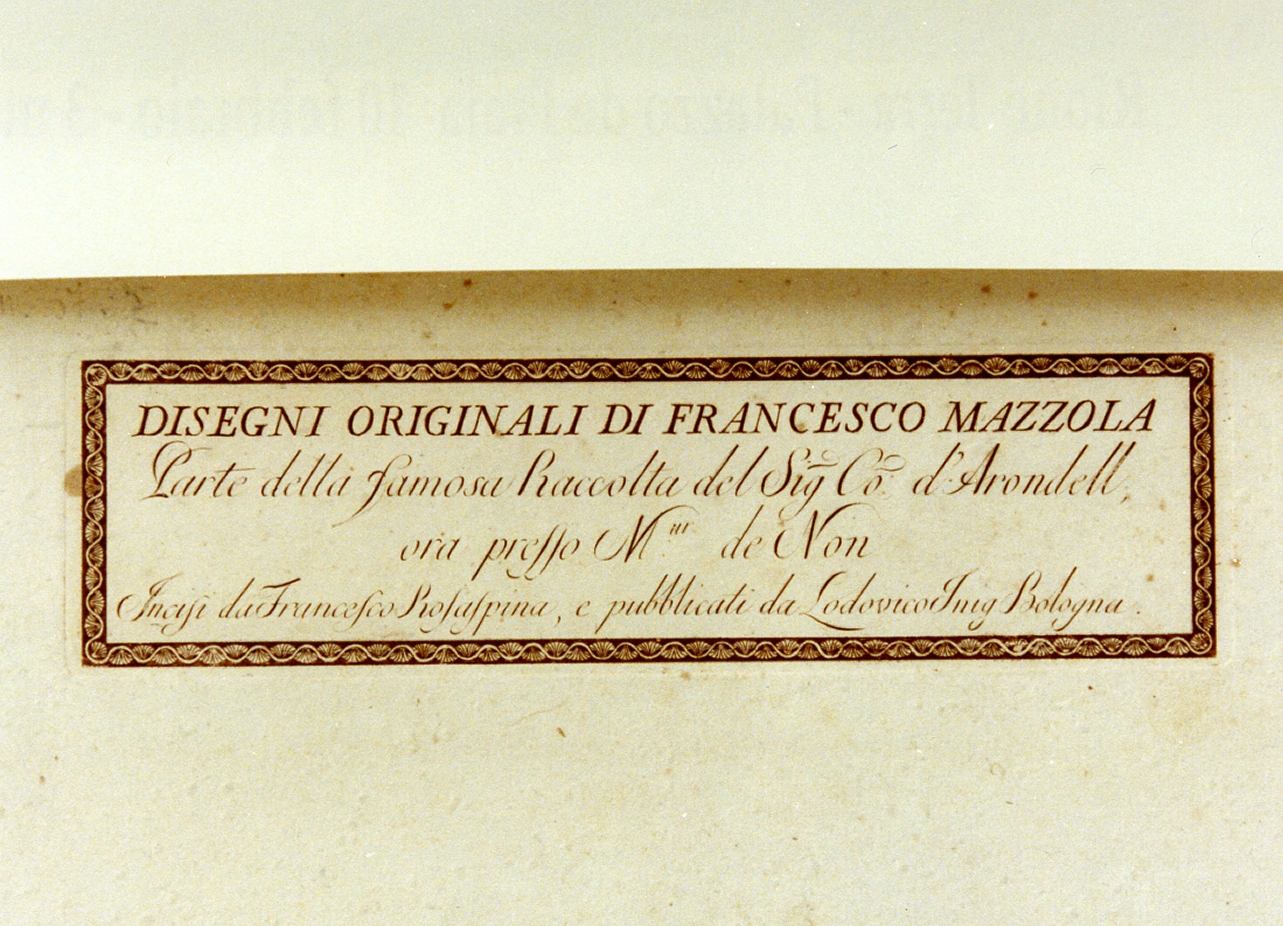 DISEGNI ORIGINALI DI FRANCESCO MAZZOLA
Parte della famosa Raccolta del Sig.̃ Co.̃ d'Arondell,
ora presso M.ur de Non
Incisi da Francesco Rosaspina, e pubblicati da Lodovico Inig Bologna.